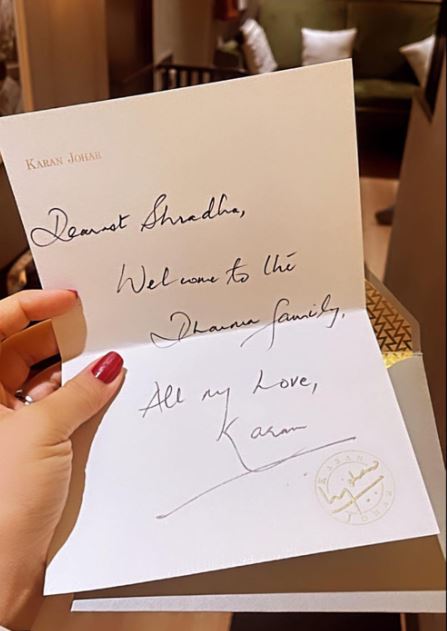 KARAN JOHAR
Dearest Shradha,
Welcome to the
Dharma family,
All my Love,
Karan
KARAN
JOHAR